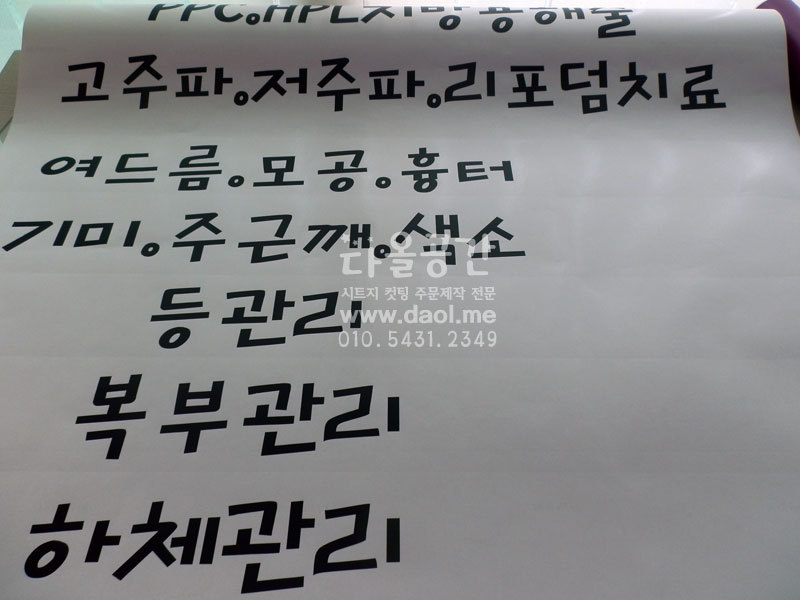 PPC.HPL지방용해술
고주파.저주파.리포덤치료
여드름.모공.흉터
기미.주근깨.색소
다올공간
시트지 컷팅 주문제작 전문
www.daol.me
010.5431.2349
등관리
복부관리
하체관리